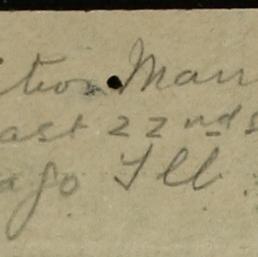 ition Man
ast 22nd s
ago Ill.